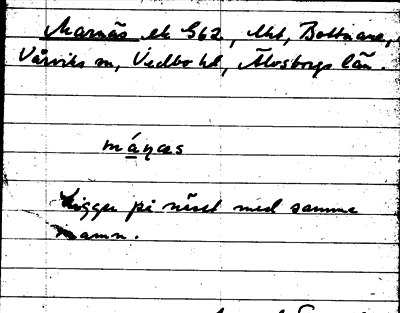 Marnäs ek 562, Mt, Bottnare,
Vårviks sn, Vedbo hd, Älvsborgs län.
máṇæs
Ligger på näset med samma
namn.